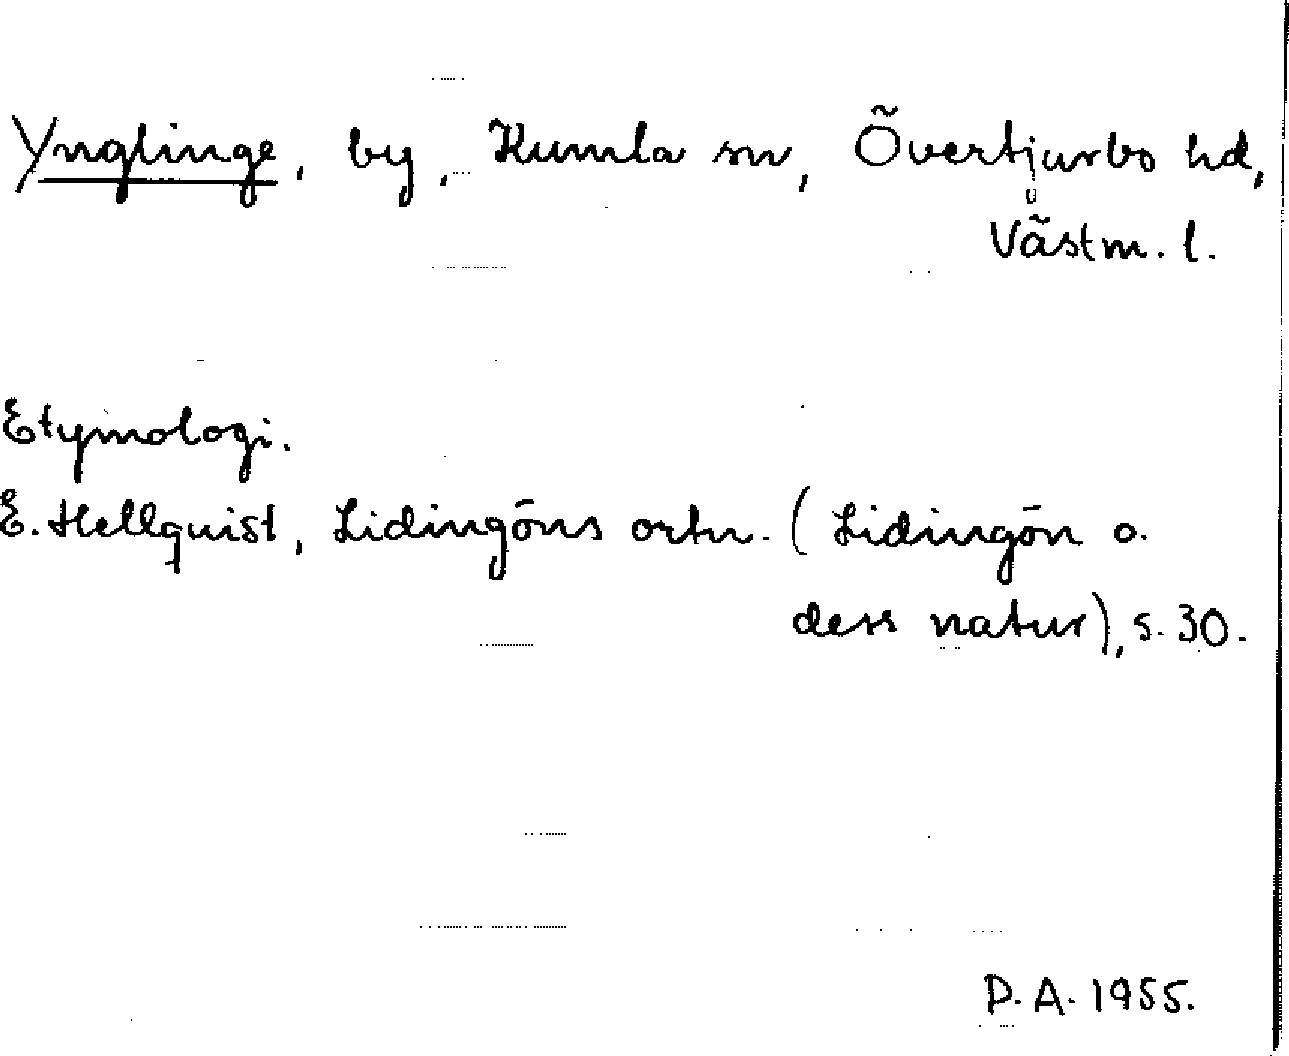 Ynglinge, by, Kumla sn, Övertjurbo hd,
Västm. l.
Etymologi.
E. Hellquist, Lidingöns ortn. (Lidingön o.
dess natur), s. 30.
P. A. 1955.